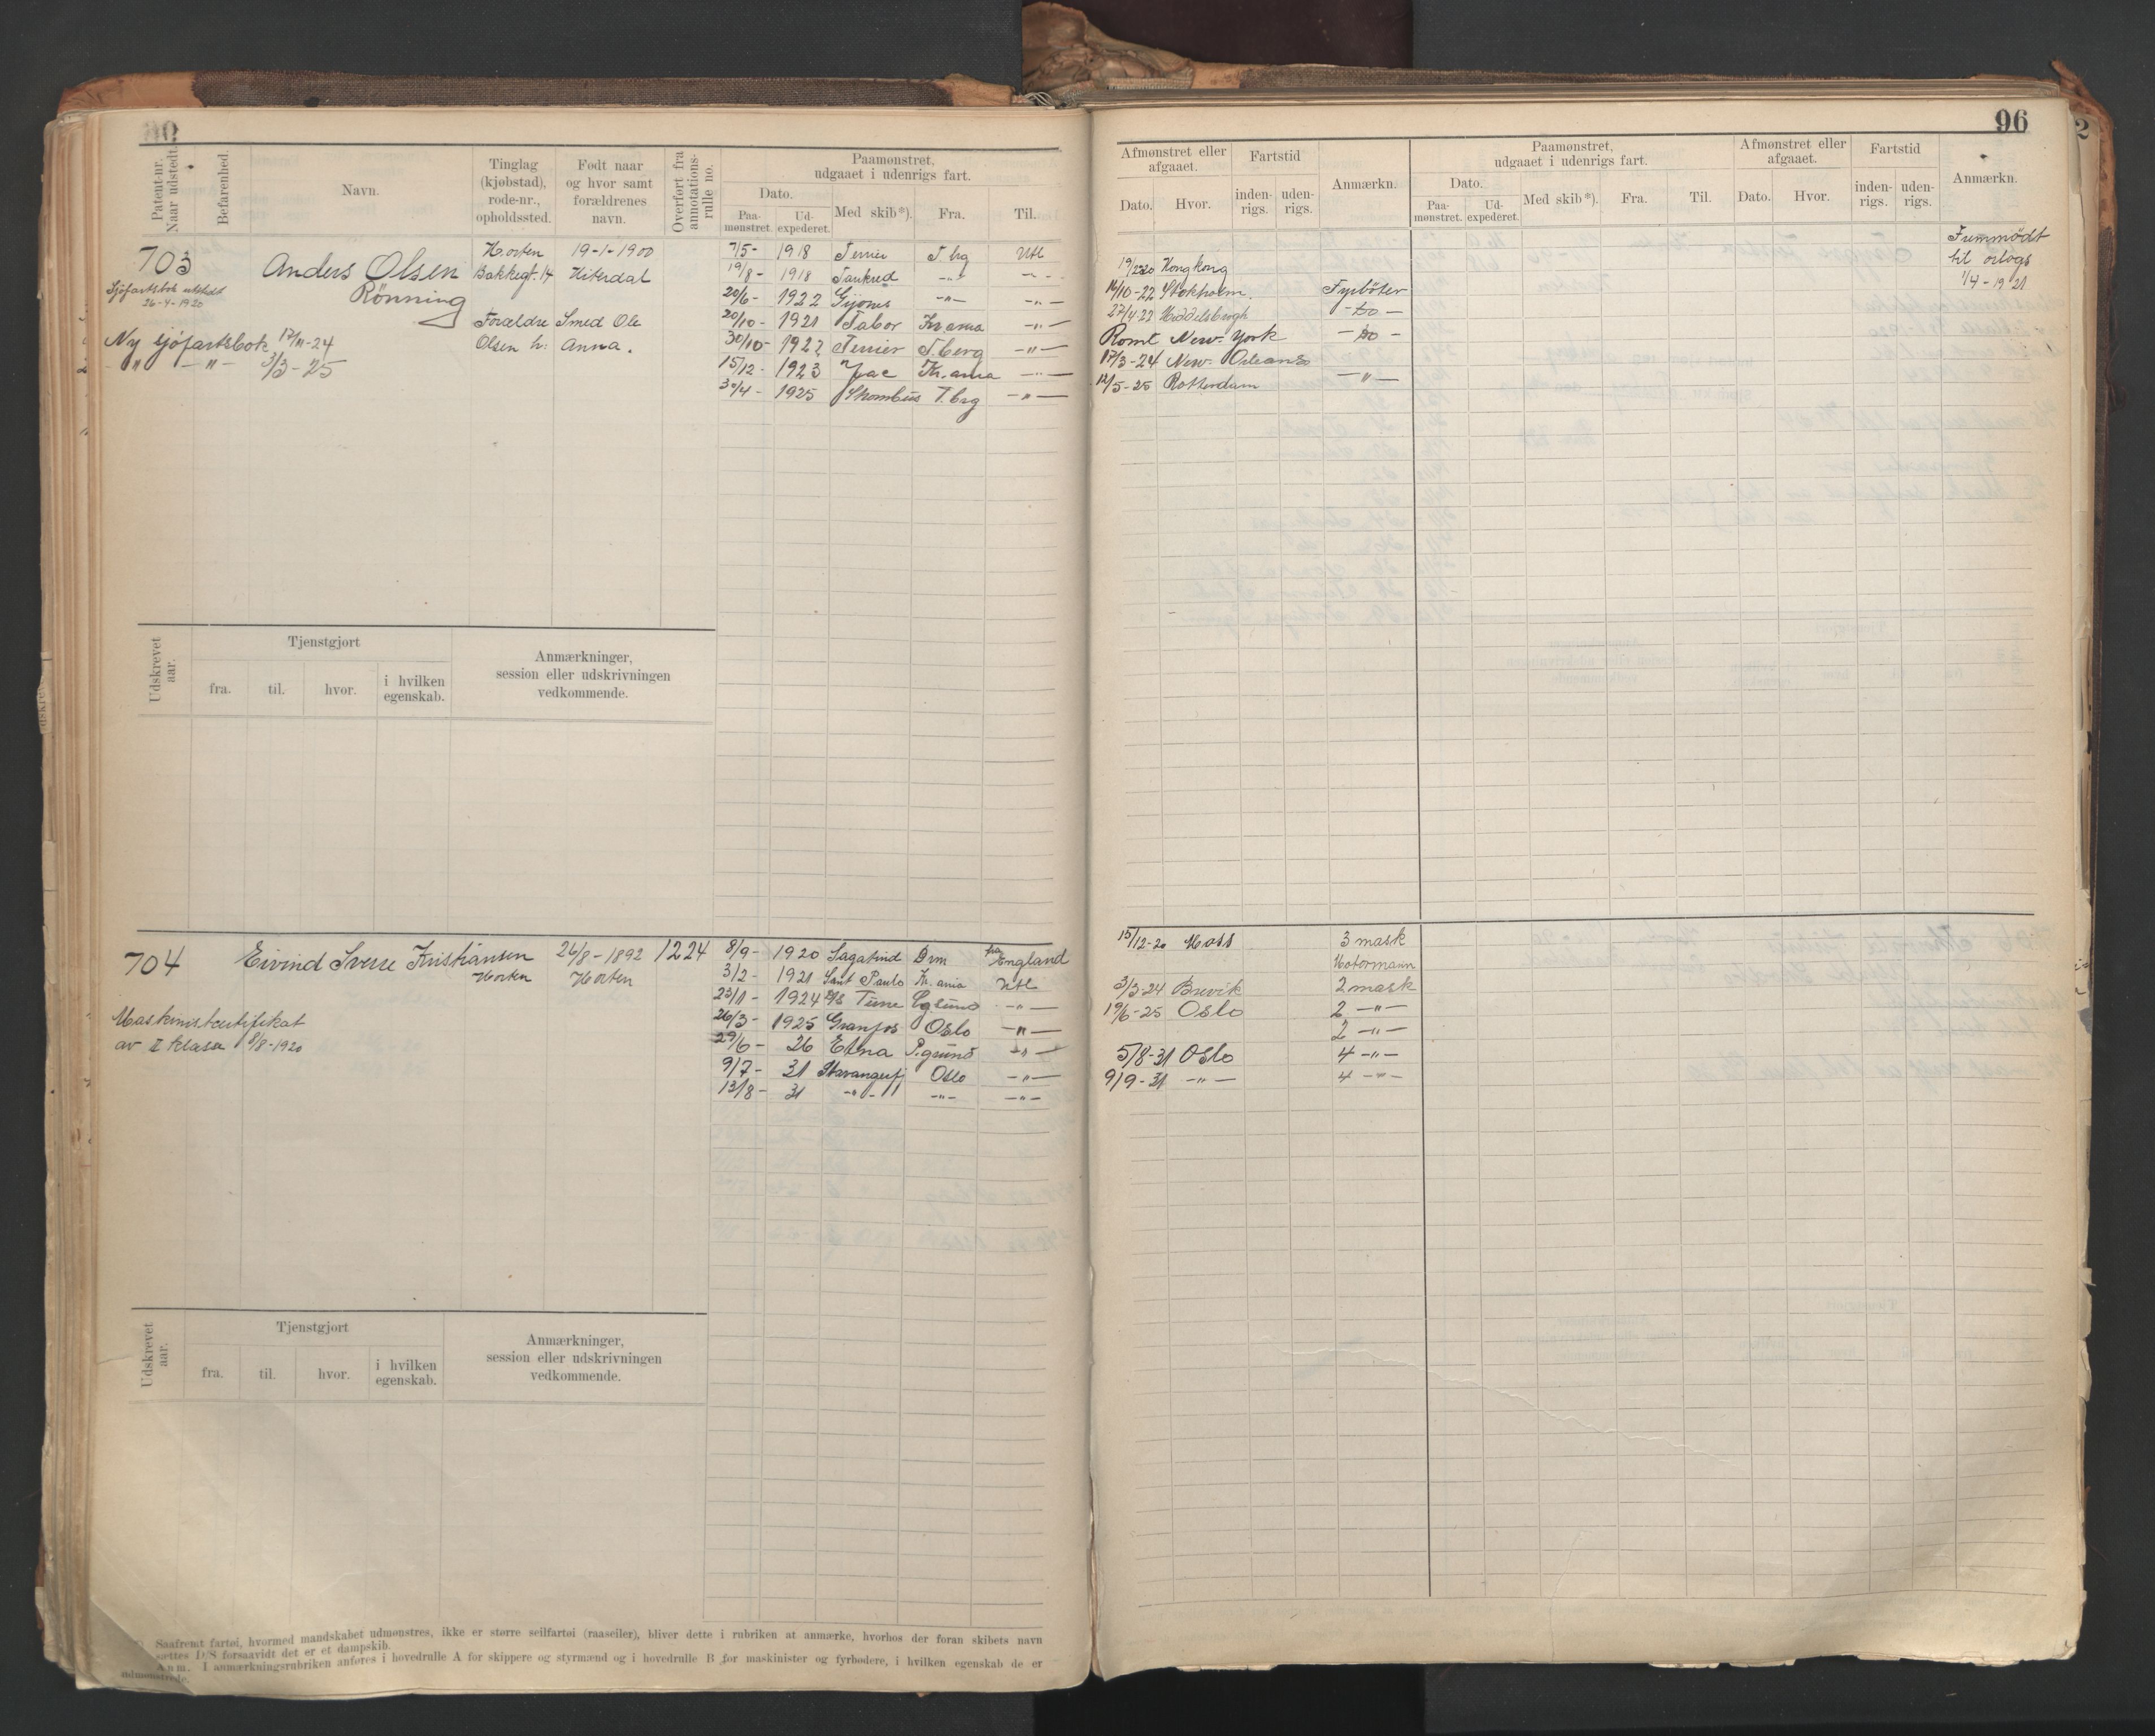 96
Patent-nr. Naar udstedt.
Befarenhed.
Navn.
Tinglag (kjøbstad), rode-nr., opholdssted.
Født naar og hvor samt forældrenes navn.
Overført fra annotations-rulle no.
Paamønstret, udgaaet i udenrigs fart.
Dato.
Paa-mønstret.
Ud-expederet.
Med skib*).
Fra.
Til.
Afmønstret eller afgaaet.
Dato.
Hvor.
Fartstid
inden-rigs.
uden-rigs.
Anmærkn.
Paamønstret, udgaaet i udenrigs fart.
Dato.
Paa-mønstret.
Ud-expederet.
Med skib*).
Fra.
Til.
Afmønstret eller afgaaet.
Dato.
Hvor.
Fartstid
inden-rigs.
uden-rigs.
Anmærkn.
703
Anders Olsen
Rönning
Horten 19-1-1900
Bakkegt. 14 Hiterdal
Forældre Smed Ole
Olsen h: Anna.
Sjöfartsbok utstedt
26-4-1920
Ny sjöfartsbok 17/11-24
-"- -"- 3/3-25
7/5- 1918 Terrier T.brg Utl
19/8- 1918 Tankred -"- -"-
20/6- 1922 -"- -"-
20/10- 1921 Tabor Kr.ania -"-
30/10- 1922 Terrier T.berg -"-
15/12- 1923 Kr.ania -"-
30/4- 1925 T.brg -"-
Hongkong
14/10-22 Stokholm. Fyrböter
27/4-22 Middelsbrogh -do-
Römt New-York -do-
17/3-24 New-Orleans
12/5-25 Rotterdam -"-
Fremmödt
til orlogs
1/4-1921
Udskrevet aar.
Tjenstgjort
fra.
til.
hvor.
i hvilken egenskab.
Anmærkninger, session eller udskrivningen vedkommende.
704
Eivind Sverre Kristiansen 26/8-1892 1224
Horten Horten
Maskinistcertifikat
av II klasse 9/8-1920
8/9- 1920 Sagatind Drm fra England
3/2- 1921 Sant Paulo Kr.ania Utl
23/1- 1924 D/S Tune -"-
26/3- 1925 Granfos Oslo -"-
29/6- 26 Etna P.grund -"-
9/7- 31 Stavangerfj Oslo -"-
13/8- 31 -"- -"- -"-
15/12-20 Moss 3 mask
Motormann
3/3-24 Brevik 2 mask
19/6-25 Oslo 2 -"-
2 -"-
5/8-31 Oslo 4 -"-
9/9-31 -"- 4 -"-
Udskrevet aar.
Tjenstgjort
fra.
til.
hvor.
i hvilken egenskab.
Anmærkninger, session eller udskrivningen vedkommende.
Saafremt fartøi, hvormed mandskabet udmønstres, ikke er større seilfartøi (raaseiler), bliver dette i rubriken at anmærke, hvorhos der foran skibets navn
sættes D/S forsaavidt det er et dampskib.
Anm. I anmærkningsrubriken anføres i hovedrulle A for skippere og styrmænd og i hovedrulle B for maskinister og fyrbødere, i hvilken egenskab de er
udmønstrede.